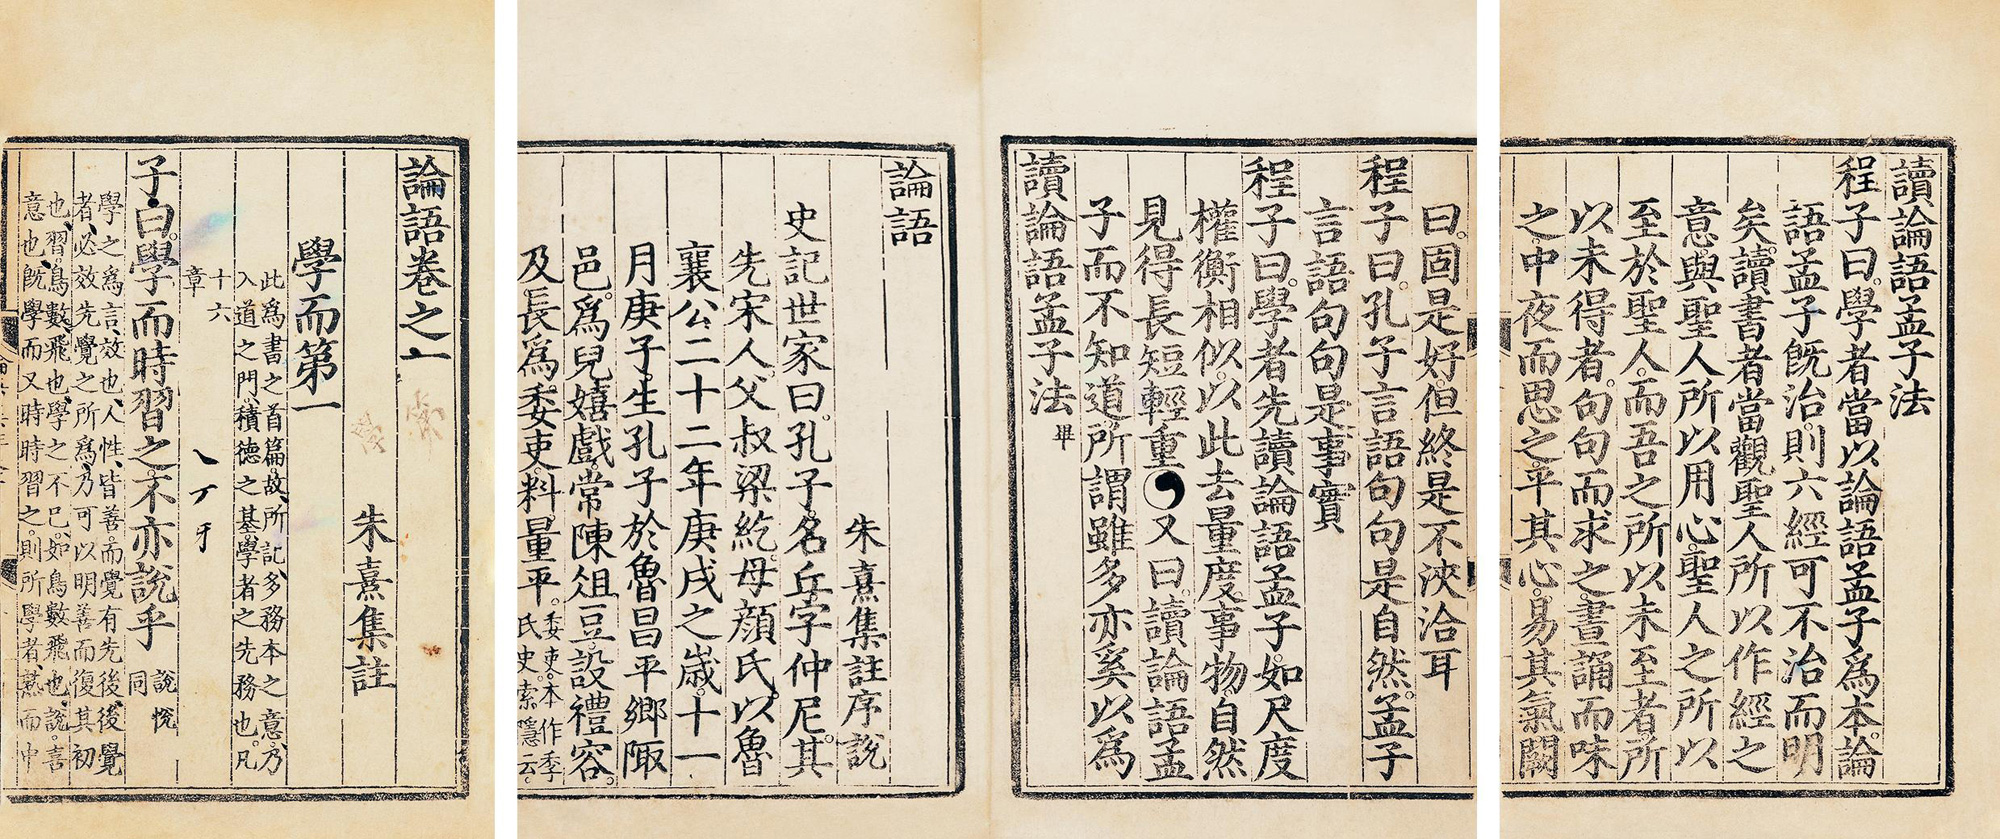 讀論語孟子法
程子曰學者當以論語孟子爲本論
語孟子旣治則六經可不治而明
矣讀書者當觀聖人所以作經之
意與聖人所以用心聖人之所以
至於聖人而吾之所以未至者所
以未得者句句而求之晝誦而味
之中夜而思之平其心易其氣闕
曰固是好但終是不浹洽耳
程子曰孔子言語句句是自然孟子
言語句句是事實
程子曰學者先讀論語孟子如尺度
權衡相似以此去量度事物自然
見得長短輕重又曰讀論語孟
子而不知道所謂雖多亦奚以爲
讀論語孟子法畢
論語
朱熹集註序說
史記世家曰孔子名丘字仲尼其
先宋人父叔梁紇母顏氏以魯
襄公二十二年庚戌之歲十一
月庚子生孔子於魯昌平鄉陬
邑爲兒嬉戲常陳俎豆設禮容
及長爲委吏料量平委吏本作季
氏史索隱云
論語卷之一
朱熹集註
學而第一
此爲書之首篇故所記多務本之意乃
入道之門積德之基學者之先務也凡
十六
章
子曰學而時習之不亦說乎說悅
同
學之爲言效也人性皆善而覺有先後後覺
者必效先覺之所爲乃可以明善而復其初
也習鳥數飛也學之不已如鳥數飛也說喜
意也旣學而又時時習之則所學者熹而中